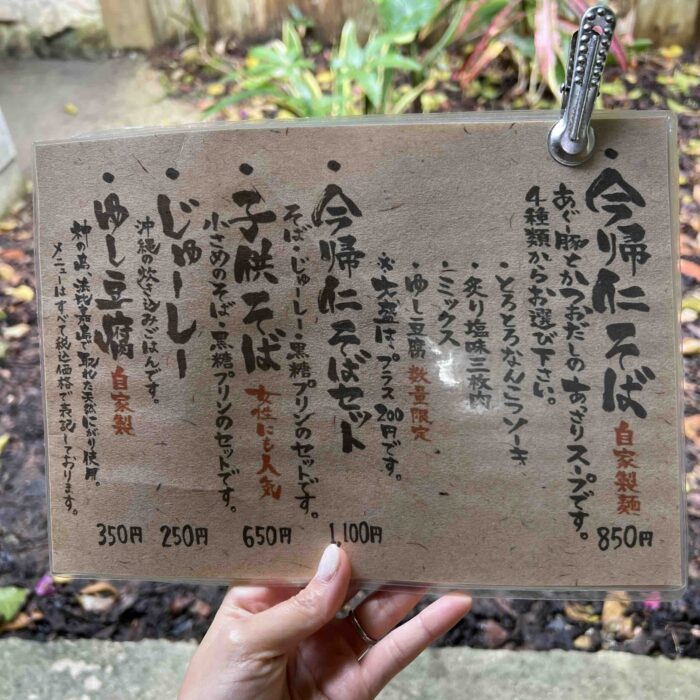 ・今帰仁そば 自家製麺 850円
あぐー豚とかつおだしのあっさりスープです。
4種類からお選び下さい。
・とろとろなんこつソーキ
・炙り塩味三枚肉
・ミックス
・ゆし豆腐 数量限定
※大盛は、プラス200円です。
・今帰仁そばセット 1,100円
そば・じゅーしー・黒糖プリンのセットです。
・子供そば 女性にも人気 650円
小さめのそば・黒糖プリンのセットです。
・じゅーしー 250円
沖縄の炊き込みごはんです。
・ゆし豆腐 自家製 350円
神の島、浜比嘉島で取れた天然にがり使用。
メニューはすべて税込価格で表記しております。